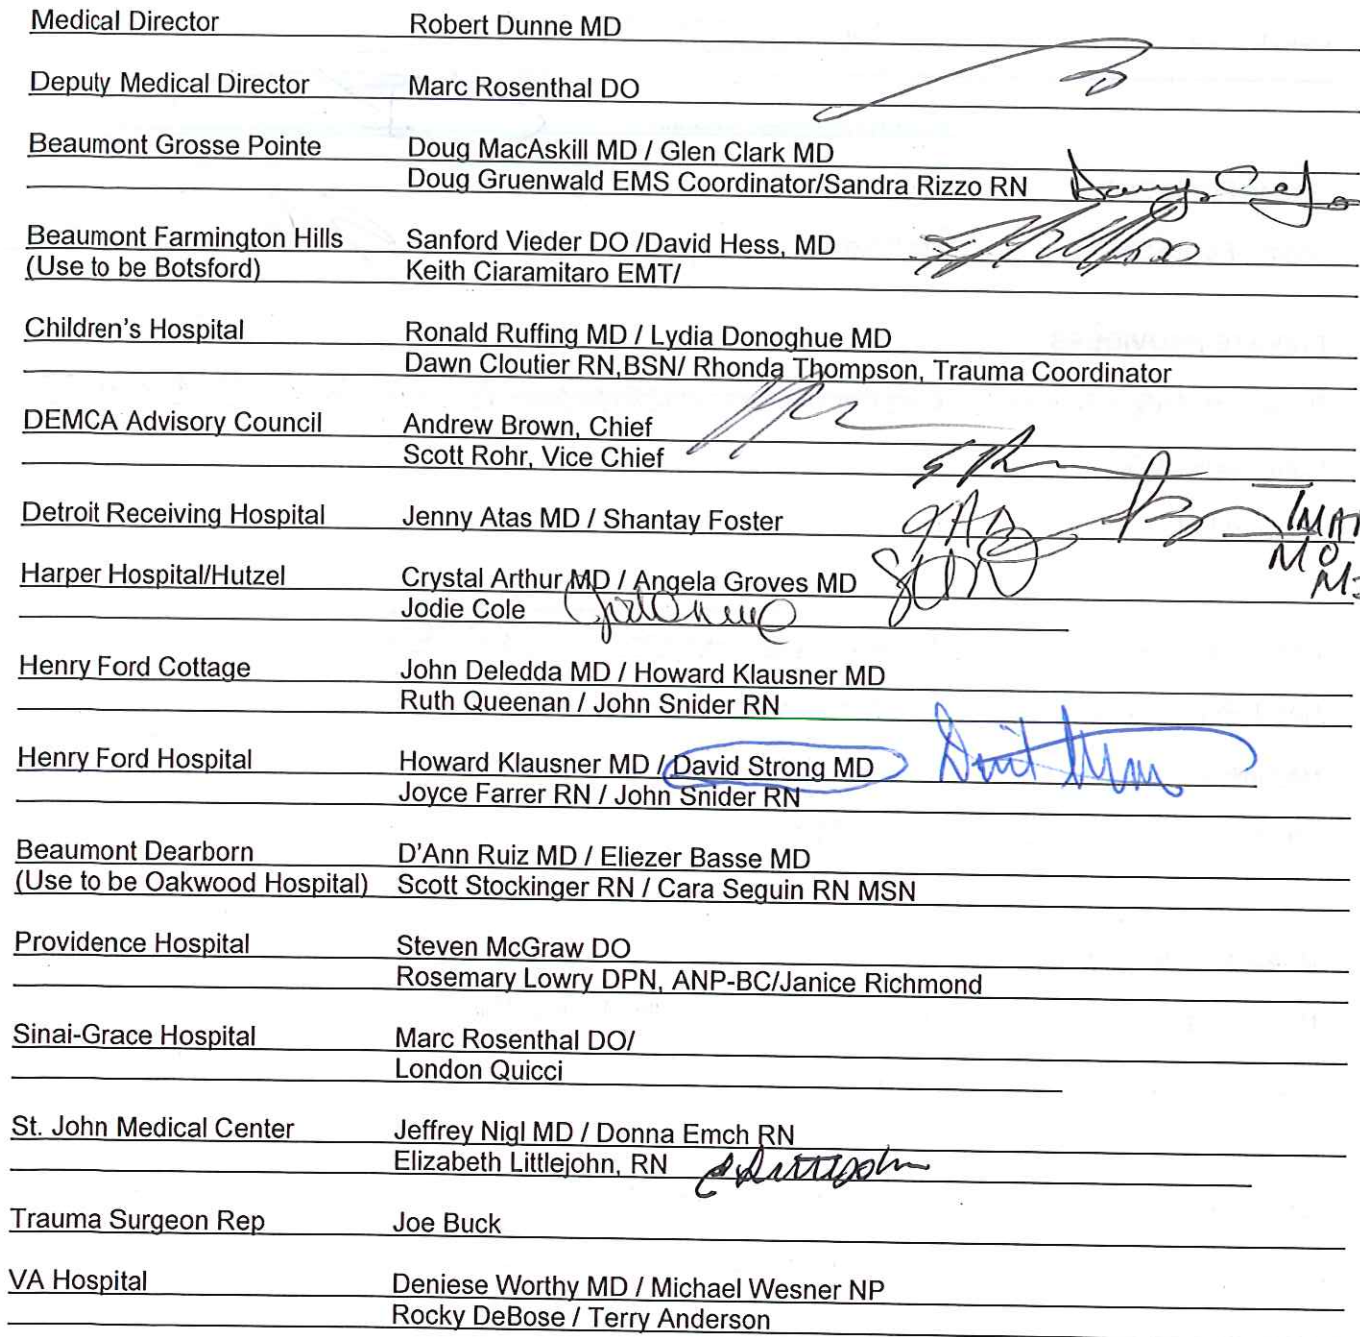 Medical Director Robert Dunne MD
Deputy Medical Director Marc Rosenthal DO
Beaumont Grosse Pointe Doug MacAskill MD / Glen Clark MD
Doug Gruenwald EMS Coordinator/Sandra Rizzo RN
Beaumont Farmington Hills Sanford Vieder DO /David Hess, MD
(Use to be Botsford) Keith Ciaramitaro EMT/
Children's Hospital Ronald Ruffing MD / Lydia Donoghue MD
Dawn Cloutier RN,BSN/ Rhonda Thompson, Trauma Coordinator
DEMCA Advisory Council Andrew Brown, Chief
Scott Rohr, Vice Chief
Detroit Receiving Hospital Jenny Atas MD / Shantay Foster
Harper Hospital/Hutzel Crystal Arthur MD / Angela Groves MD
Jodie Cole
Henry Ford Cottage John Deledda MD / Howard Klausner MD
Ruth Queenan / John Snider RN
Henry Ford Hospital Howard Klausner MD / David Strong MD
Joyce Farrer RN / John Snider RN
Beaumont Dearborn D'Ann Ruiz MD / Eliezer Basse MD
(Use to be Oakwood Hospital) Scott Stockinger RN / Cara Seguin RN MSN
Providence Hospital Steven McGraw DO
Rosemary Lowry DPN, ANP-BC/Janice Richmond
Sinai-Grace Hospital Marc Rosenthal DO/
London Quicci
St. John Medical Center Jeffrey Nigl MD / Donna Emch RN
Elizabeth Littlejohn, RN
Trauma Surgeon Rep Joe Buck
VA Hospital Deniese Worthy MD / Michael Wesner NP
Rocky DeBose / Terry Anderson